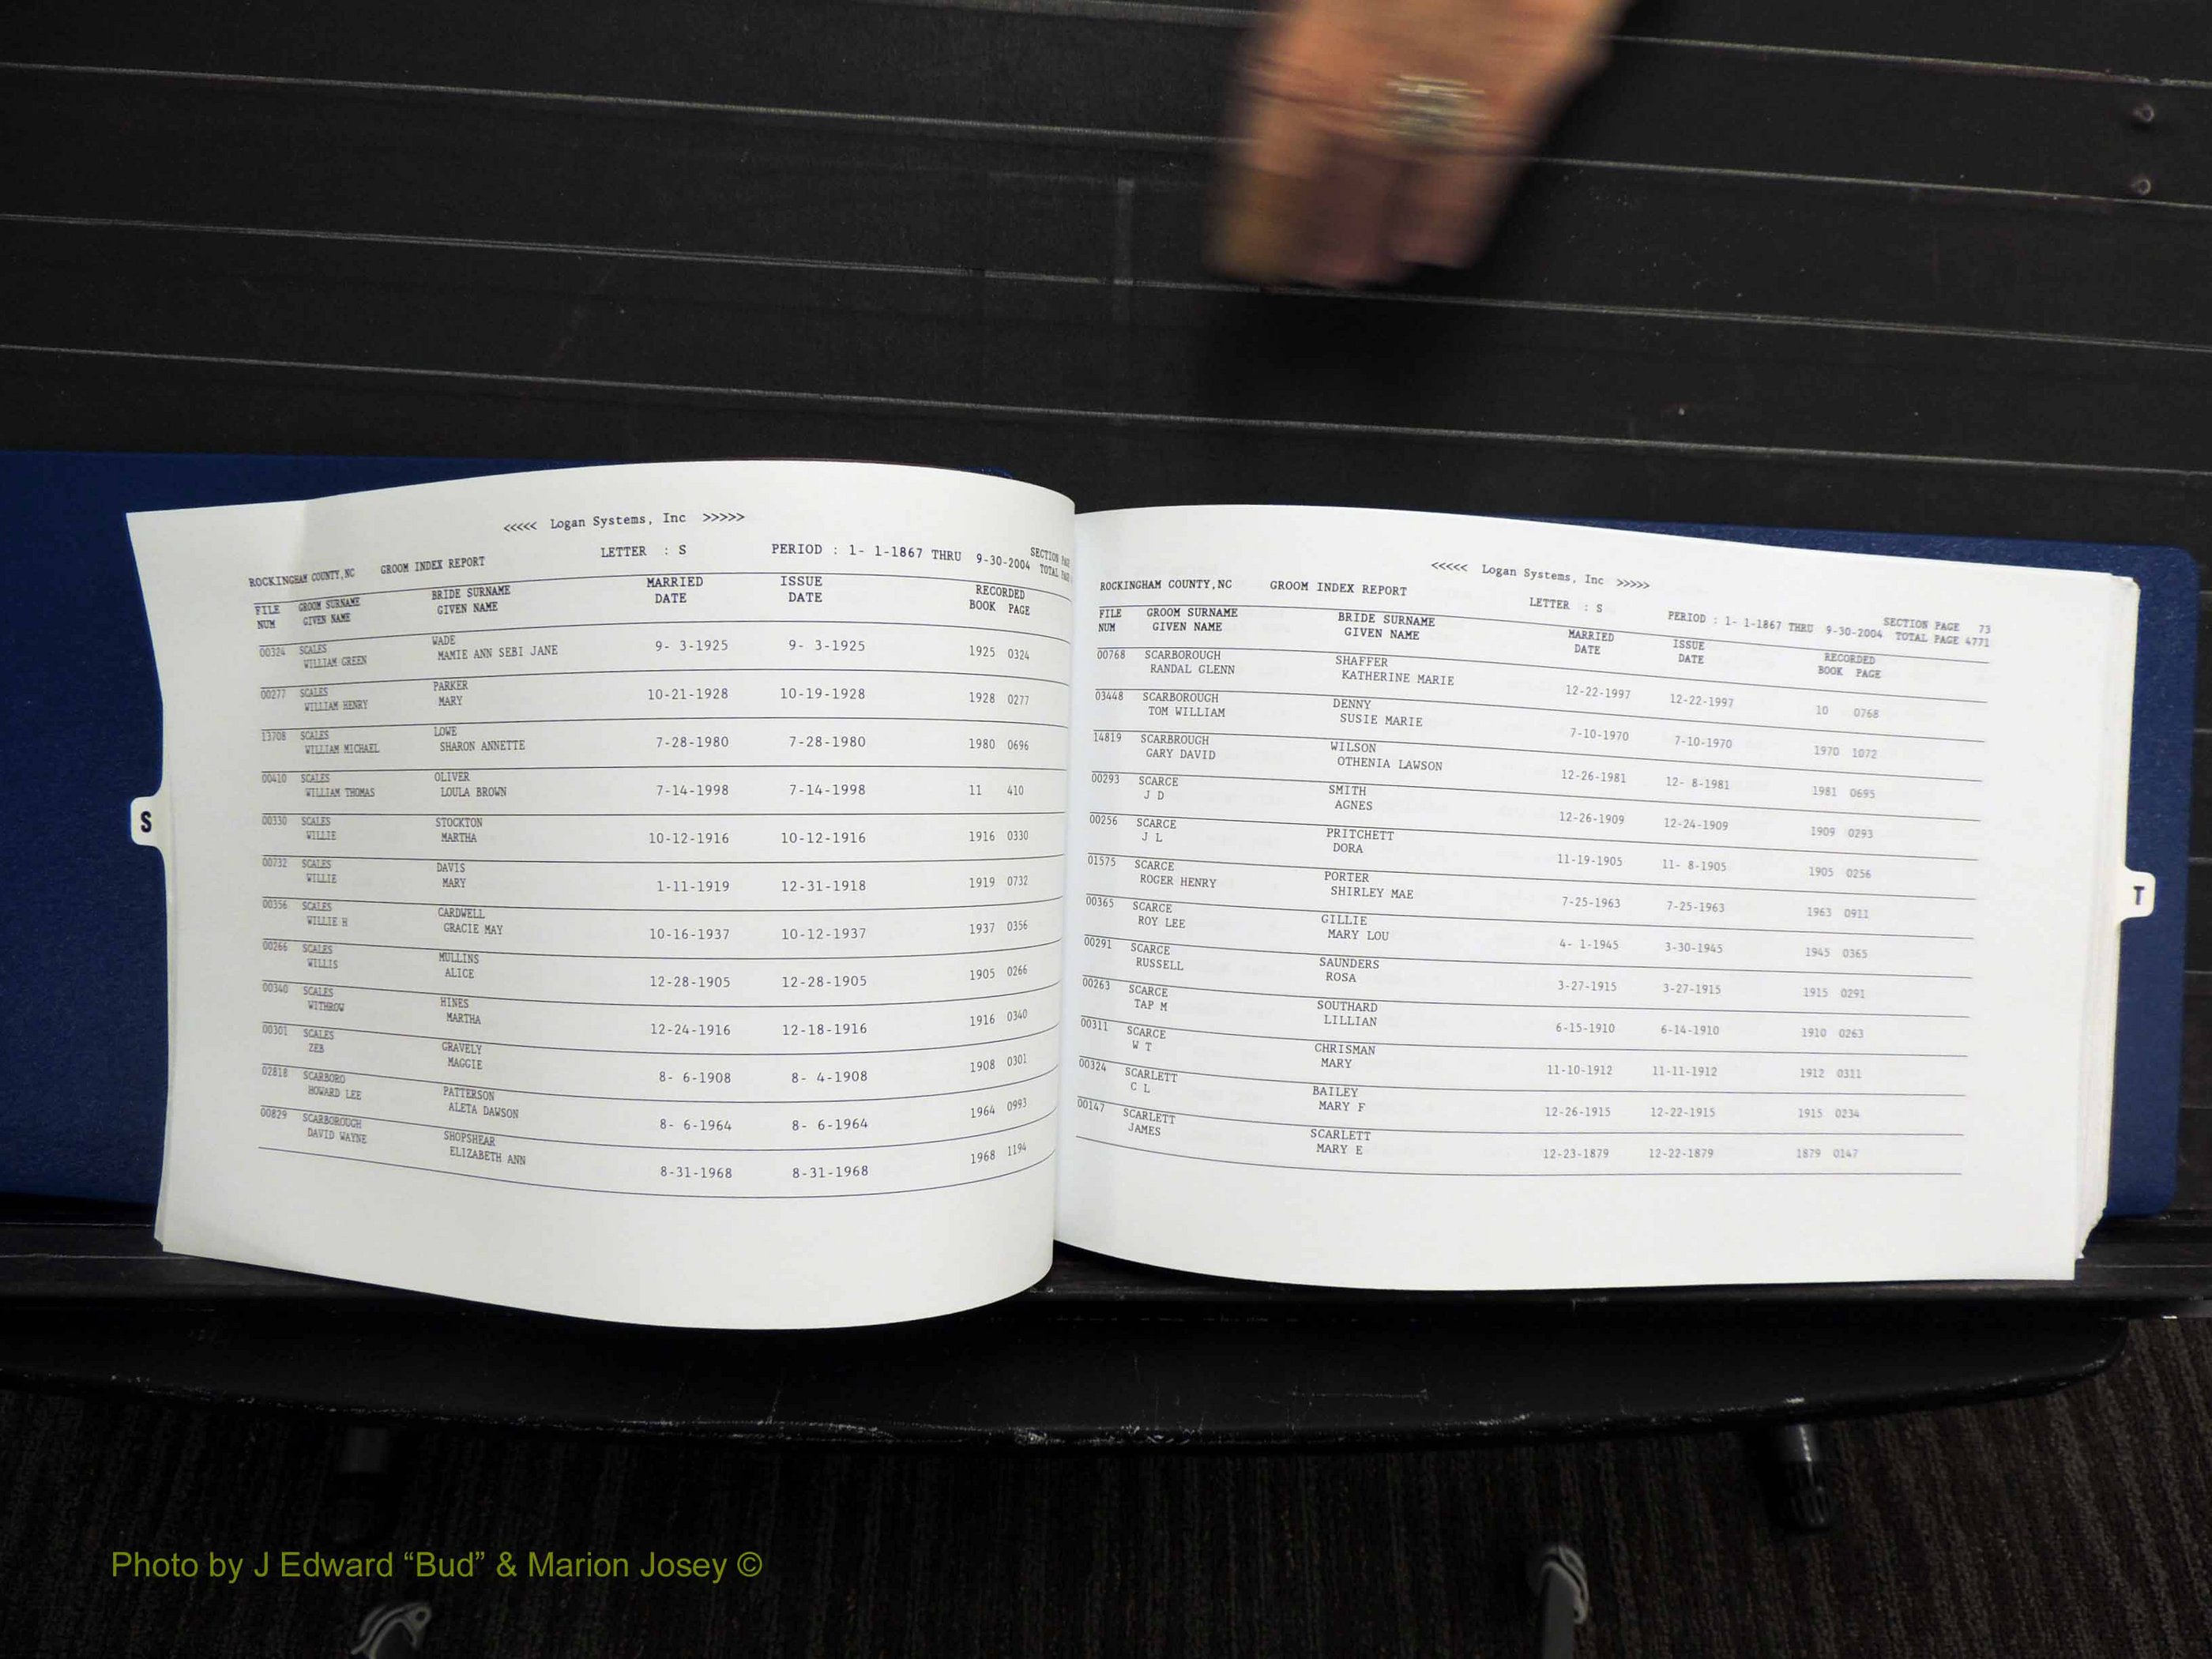 <<<<< Logan Systems, Inc >>>>>
ROCKINGHAM COUNTY,NC GROOM INDEX REPORT LETTER : S PERIOD : 1- 1-1867 THRU 9-30-2004 SECTION
TOTAL
FILE GROOM SURNAME BRIDE SURNAME MARRIED ISSUE RECORDED
NUM GIVEN NAME GIVEN NAME DATE DATE BOOK PAGE
00324 SCALES WADE 9- 3-1925 9- 3-1925 1925 0324
WILLIAM GREEN MAMIE ANN SEBI JANE
00277 SCALES PARKER 10-21-1928 10-19-1928 1928 0277
WILLIAM HENRY MARY
13708 SCALES LOWE 7-28-1980 7-28-1980 1980 0696
WILLIAM MICHAEL SHARON ANNETTE
00410 SCALES OLIVER 7-14-1998 7-14-1998 11 410
WILLIAM THOMAS LOULA BROWN
00330 SCALES STOCKTON 10-12-1916 10-12-1916 1916 0330
WILLIE MARTHA
00732 SCALES DAVIS 1-11-1919 12-31-1918 1919 0732
WILLIE MARY
00356 SCALES CARDWELL 10-16-1937 10-12-1937 1937 0356
WILLIE H GRACIE MAY
00266 SCALES MULLINS 12-28-1905 12-28-1905 1905 0266
WILLIS ALICE
00340 SCALES HINES 12-24-1916 12-18-1916 1916 0340
WITHROW MARTHA
00301 SCALES GRAVELY 8- 6-1908 8- 4-1908 1908 0301
ZEB MAGGIE
02818 SCARBORO PATTERSON 8- 6-1964 8- 6-1964 1964 0993
HOWARD LEE ALETA DAWSON
00829 SCARBOROUGH SHOPSHEAR 8-31-1968 8-31-1968 1968 1194
DAVID WAYNE ELIZABETH ANN
S
<<<<< Logan Systems, Inc >>>>>
ROCKINGHAM COUNTY,NC GROOM INDEX REPORT LETTER : S PERIOD : 1- 1-1867 THRU 9-30-2004 SECTION PAGE 73
TOTAL PAGE 4771
FILE GROOM SURNAME BRIDE SURNAME MARRIED ISSUE RECORDED
NUM GIVEN NAME GIVEN NAME DATE DATE BOOK PAGE
00768 SCARBOROUGH SHAFFER 12-22-1997 12-22-1997 10 0768
RANDAL GLENN KATHERINE MARIE
03448 SCARBOROUGH DENNY 7-10-1970 7-10-1970 1970 1072
TOM WILLIAM SUSIE MARIE
14819 SCARBROUGH WILSON 12-26-1981 12- 8-1981 1981 0695
GARY DAVID OTHENIA LAWSON
00293 SCARCE SMITH 12-26-1909 12-24-1909 1909 0293
J D AGNES
00256 SCARCE PRITCHETT 11-19-1905 11- 8-1905 1905 0256
J L DORA
01575 SCARCE PORTER 7-25-1963 7-25-1963 1963 0911
ROGER HENRY SHIRLEY MAE
00365 SCARCE GILLIE 4- 1-1945 3-30-1945 1945 0365
ROY LEE MARY LOU
00291 SCARCE SAUNDERS 3-27-1915 3-27-1915 1915 0291
RUSSELL ROSA
00263 SCARCE SOUTHARD 6-15-1910 6-14-1910 1910 0263
TAP M LILLIAN
00311 SCARCE CHRISMAN 11-10-1912 11-11-1912 1912 0311
W T MARY
00324 SCARLETT BAILEY 12-26-1915 12-22-1915 1915 0234
C L MARY F
00147 SCARLETT SCARLETT 12-23-1879 12-22-1879 1879 0147
JAMES MARY E
T
Photo by J Edward “Bud” & Marion Josey ©